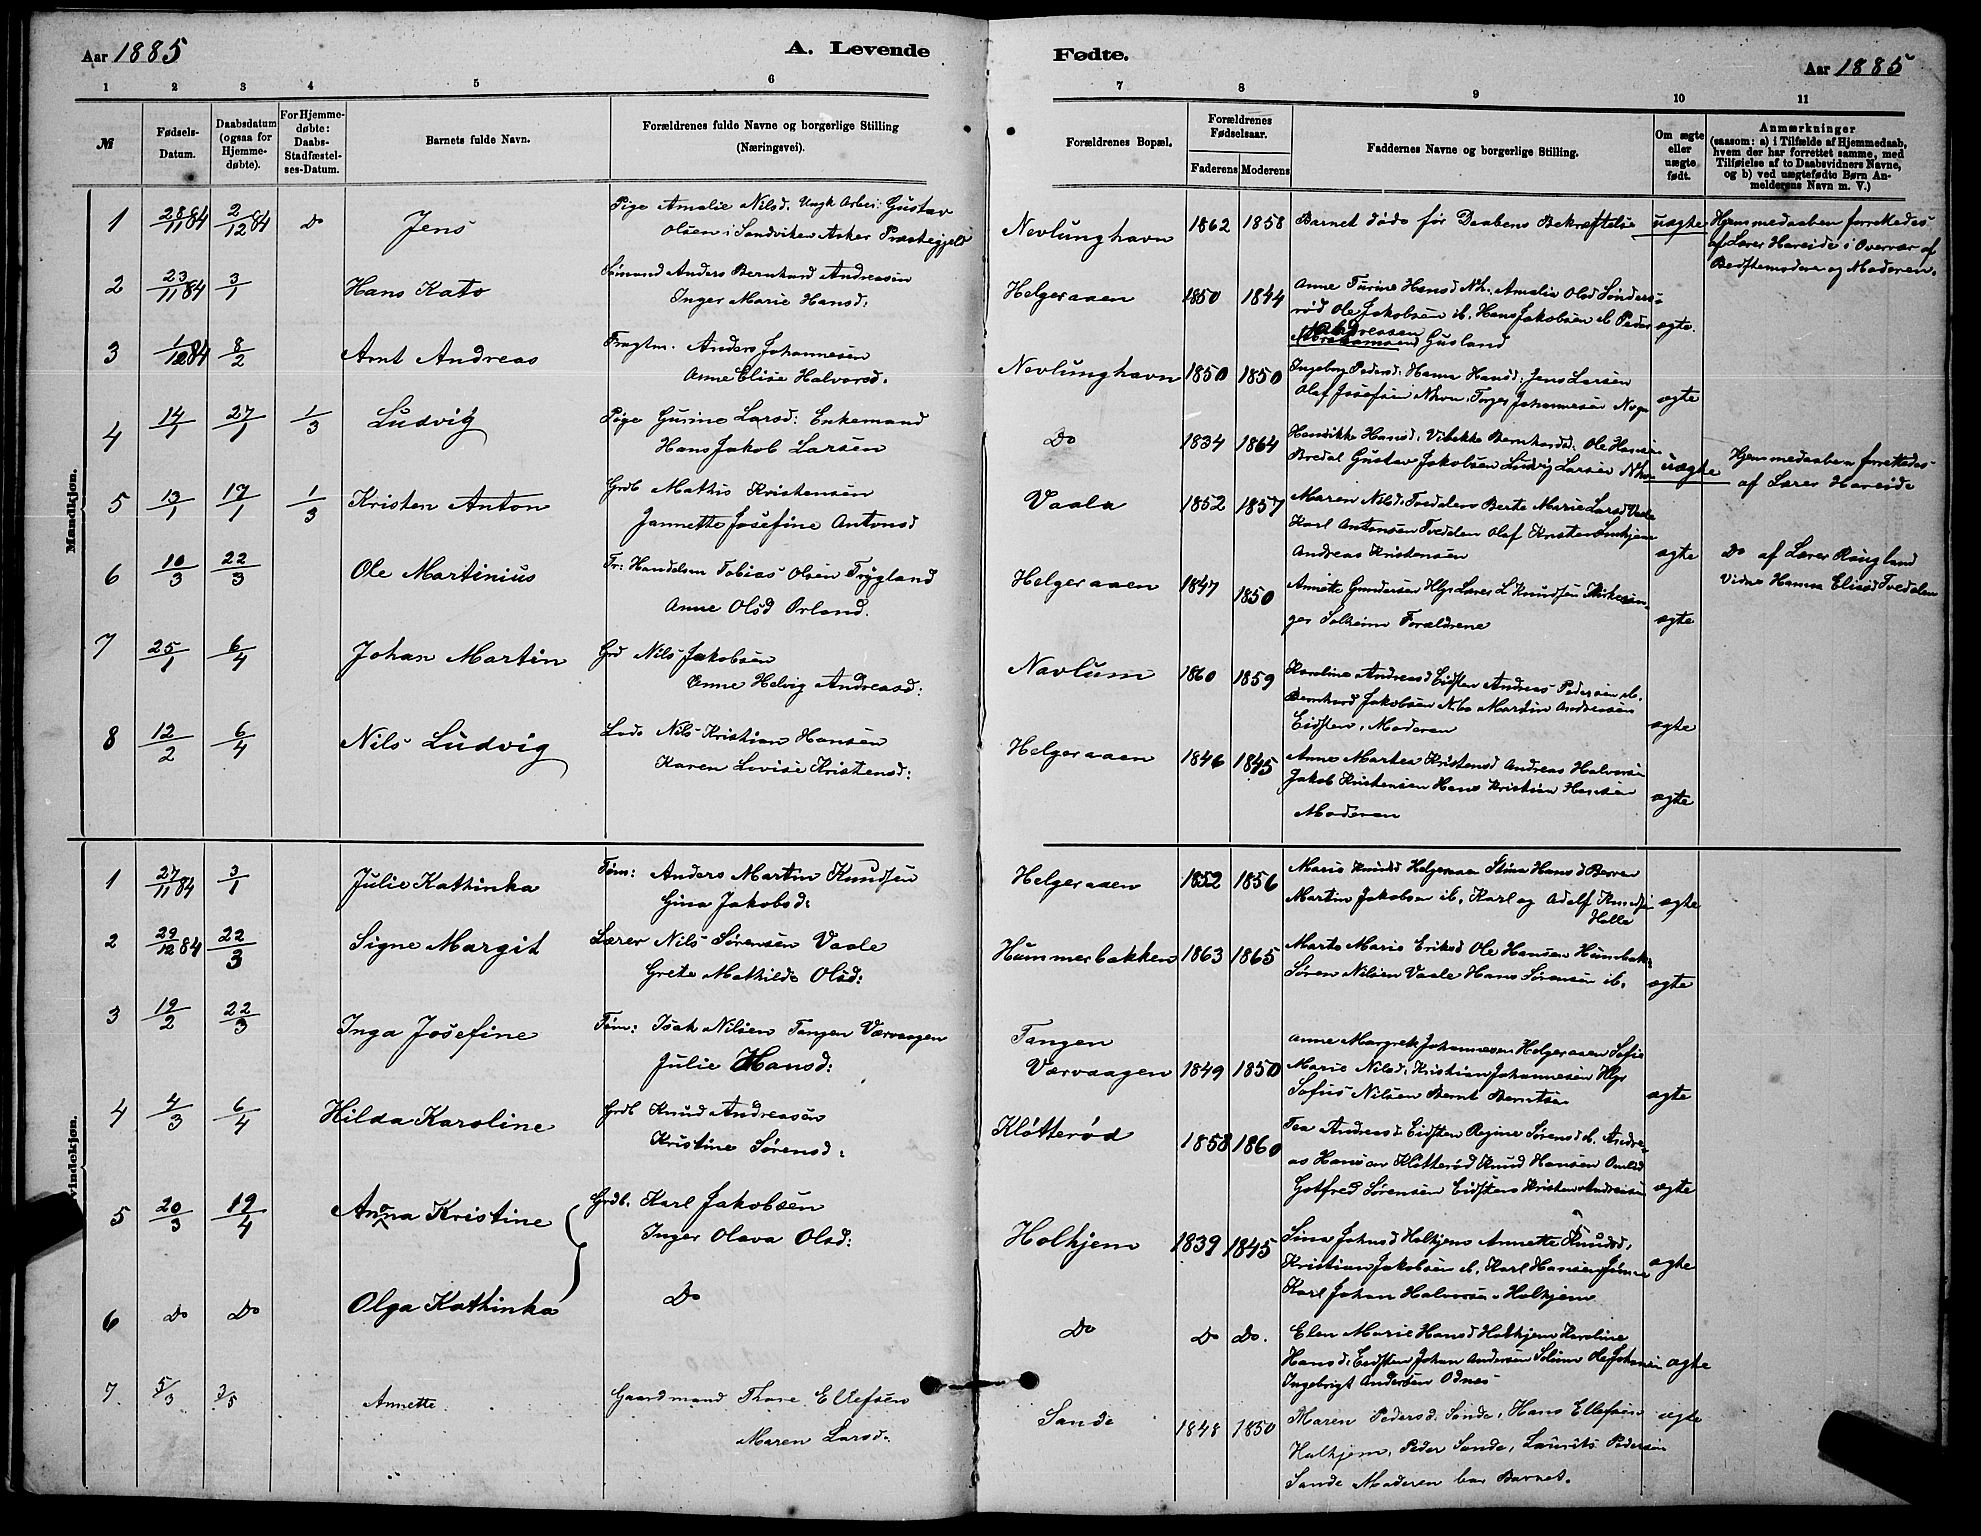 Aar 1885
A. Levende
Fødte.
Aar 1885
1 2 3 4 5 6 7 8 9 10 11
№
Fødsels-Datum.
Daabsdatum (ogsaa for Hjemmedøbte).
For Hjemmedøbte: Daabs-Stadfæstelses-Datum.
Barnets fulde Navn.
Forældrenes fulde Navne og borgerlige Stilling (Næringsvei).
Forældrenes Bopæl.
Forældrenes Fødselsaar.
Faderens Moderens
Faddernes Navne og borgerlige Stilling.
Om ægte eller uægte født.
Anmærkninger
(saasom: a) i Tilfælde af Hjemmedaab, hvem der har forrettet samme, med Tilføielse af to Daabsvidners Navne, og b) ved uægtefødte Børn Anmelderens Navn m. V.)
Mandkjøn.
1 28/11 84 2/12 84 Do Jens
Pige Amalie Nilsd. Ungk Arbei: Gustav
Olsen i Sandviken Asker Præstegjeld
Nevlunghavn 1862 1858
Barnet døde før Daabens Bekræftelse
uægte
Hjemmedaaben forrettedes
af Lærer Hareide i Overvær af
Bedstemodere og Moderen.
2 23/11 84 3/1 Hans Kato
Sømand Anders Bernhard Andreasen
Inger Marie Hansd:
Helgeraaen 1850 1844
Anne Turine Hansd Nh. Amalie Olsd Sønders-
rød Ole Jakobsen ib. Hans Jakobsen ib Peder
Andreassen
Abrahamsen Gusland
ægte.
3 1/12 84 8/2 Arnt Andreas
Fragtm. Anders Johannesen
Anne Elise Halvorsd.
Nevlunghavn 1850 1850
Ingeborg Pedersd. Hanna Hansd: Jens Larsen
Olaf Josefsen Nhvn. Torger Johannesen
ægte
4 14/1 27/1 1/3 Ludvig
Pige Gusine Larsd: Enkemand
Hans Jakob Larsen
Do 1834 1864
Hendikke Hansd. Vibekke Bernhardsd. Ole Hansen
Bredal Gustav Jakobsen Ludvig Larsen Nhvn
uægte
Hjemmedaaben forrettedes
af Lærer Hareide
5 13/1 17/1 1/3 Kristen Anton
Grdb Mathis Kristensen
Jannette Josefine Antonsd
Vaala 1852 1857
Maren Nilsd. Tvedalen Berte Marie Larsd Vaale
Karl Antonsen Tvedalen Olaf Kristens
Andreas Kristensen
ægte
Do af Lærer Ringland
Vidne Hanna Elised Tvedalen
6 10/3 22/3 Ole Martinius
Fr: Handelsm Tobias Olsen Frygland
Anne Olsd Orland.
Helgeraaen 1847 1850
Annette Gundersen Hlgr Lærer L Knudsen Kirkesan-
ger Solheim Forældrene
ægte
7 25/1 6/4 Johan Martin
Grd Nils Jakobsen
Anne Helvig Andreasd:
Navlum 1860 1859
Karoline Andreasd Eidsten Andreas Pedersen ib.
Bernhard Jakobsen Martin Andreasen
Eidsten, Moderen
ægte
8 12/2 6/4 Nils Ludvig
Lods Nils Kristian Hansen
Karen Lovise Kristensd:
Helgeraaen 1846 1845
Anne Martea Kristensd Andreas Halvorsen
Jakob Kristensen Hans Kristian Hansen
Moderen
ægte
Kvindekjøn.
1 27/11 84 3/1 Julie Kathinka
Tøm: Anders Martin Knudsen
Gina Jakobsd:
Helgeraaen 1852 1856
Marie Knudsd Helgeraaen Stina Hansd Berven
Martin Jakobsen ib. Karl og Adolf Knudsen
Halle
ægte
2 29/12 84 22/3 Signe Margit
Lærer Nils Sørensen Vaale
Grete Mathilde Olsd:
Hummerbakken 1863 1865
Marte Marie Eriksd Ole Hansen Humbak:
Søren Nilsen Vaale Hans Sørensen ib.
ægte
3 19/2 22/3 Inga Josefine
Tøm: Isak Nilsen Tangen Værvaagen
Julie Hansd:
Tangen
Værvaagen 1849 1850
Anne Margrete Johannesen Helgeraaen Sofie
Marie Nilsd. Kristian Johannesen Hlgr
Sofus Nilsen Bernt Berntsen
ægte
4 4/3 6/4 Hilda Karoline
Grdb Knud Andreasen
Kristine Sørensd:
Kløtterød 1858 1860
Tea Andreasd Eidsten Regine Sørensd ib. Andre-
as Hansen Kløtterød Knud Hansen Omlid
Gotfred Sørensen Eidsten Kristen Andreasen
ægte
5 20/3 19/4 Anna Kristine
Grdb. Karl Jakobsen
Inger Olava Olsd:
Holhjem 1839 1845
Sina Johnsd Holhjem Annette Knudsd.
Kristian Jakobsen ib. Karl Hansen
Karl Johan Halvorsen Holhjem
ægte
6 Do Do Olga Kathinka
Do
Do Do Do.
Elen Marie Hansd Holhjem Karoline
Hansd. Eidsten Johan Andersen Ole Johansen
Ingebrigt Andersen Odnes
ægte
7 5/3 3/5 Annette.
Gaardmand Thore Ellefsen
Maren Larsd.
Sande 1848 1850
Maren Pedersd. Sande, Hans Ellefsen
Holhjem, Peder Sande, Laurits Pedersen
Sande Moderen bar Barnet.
ægte